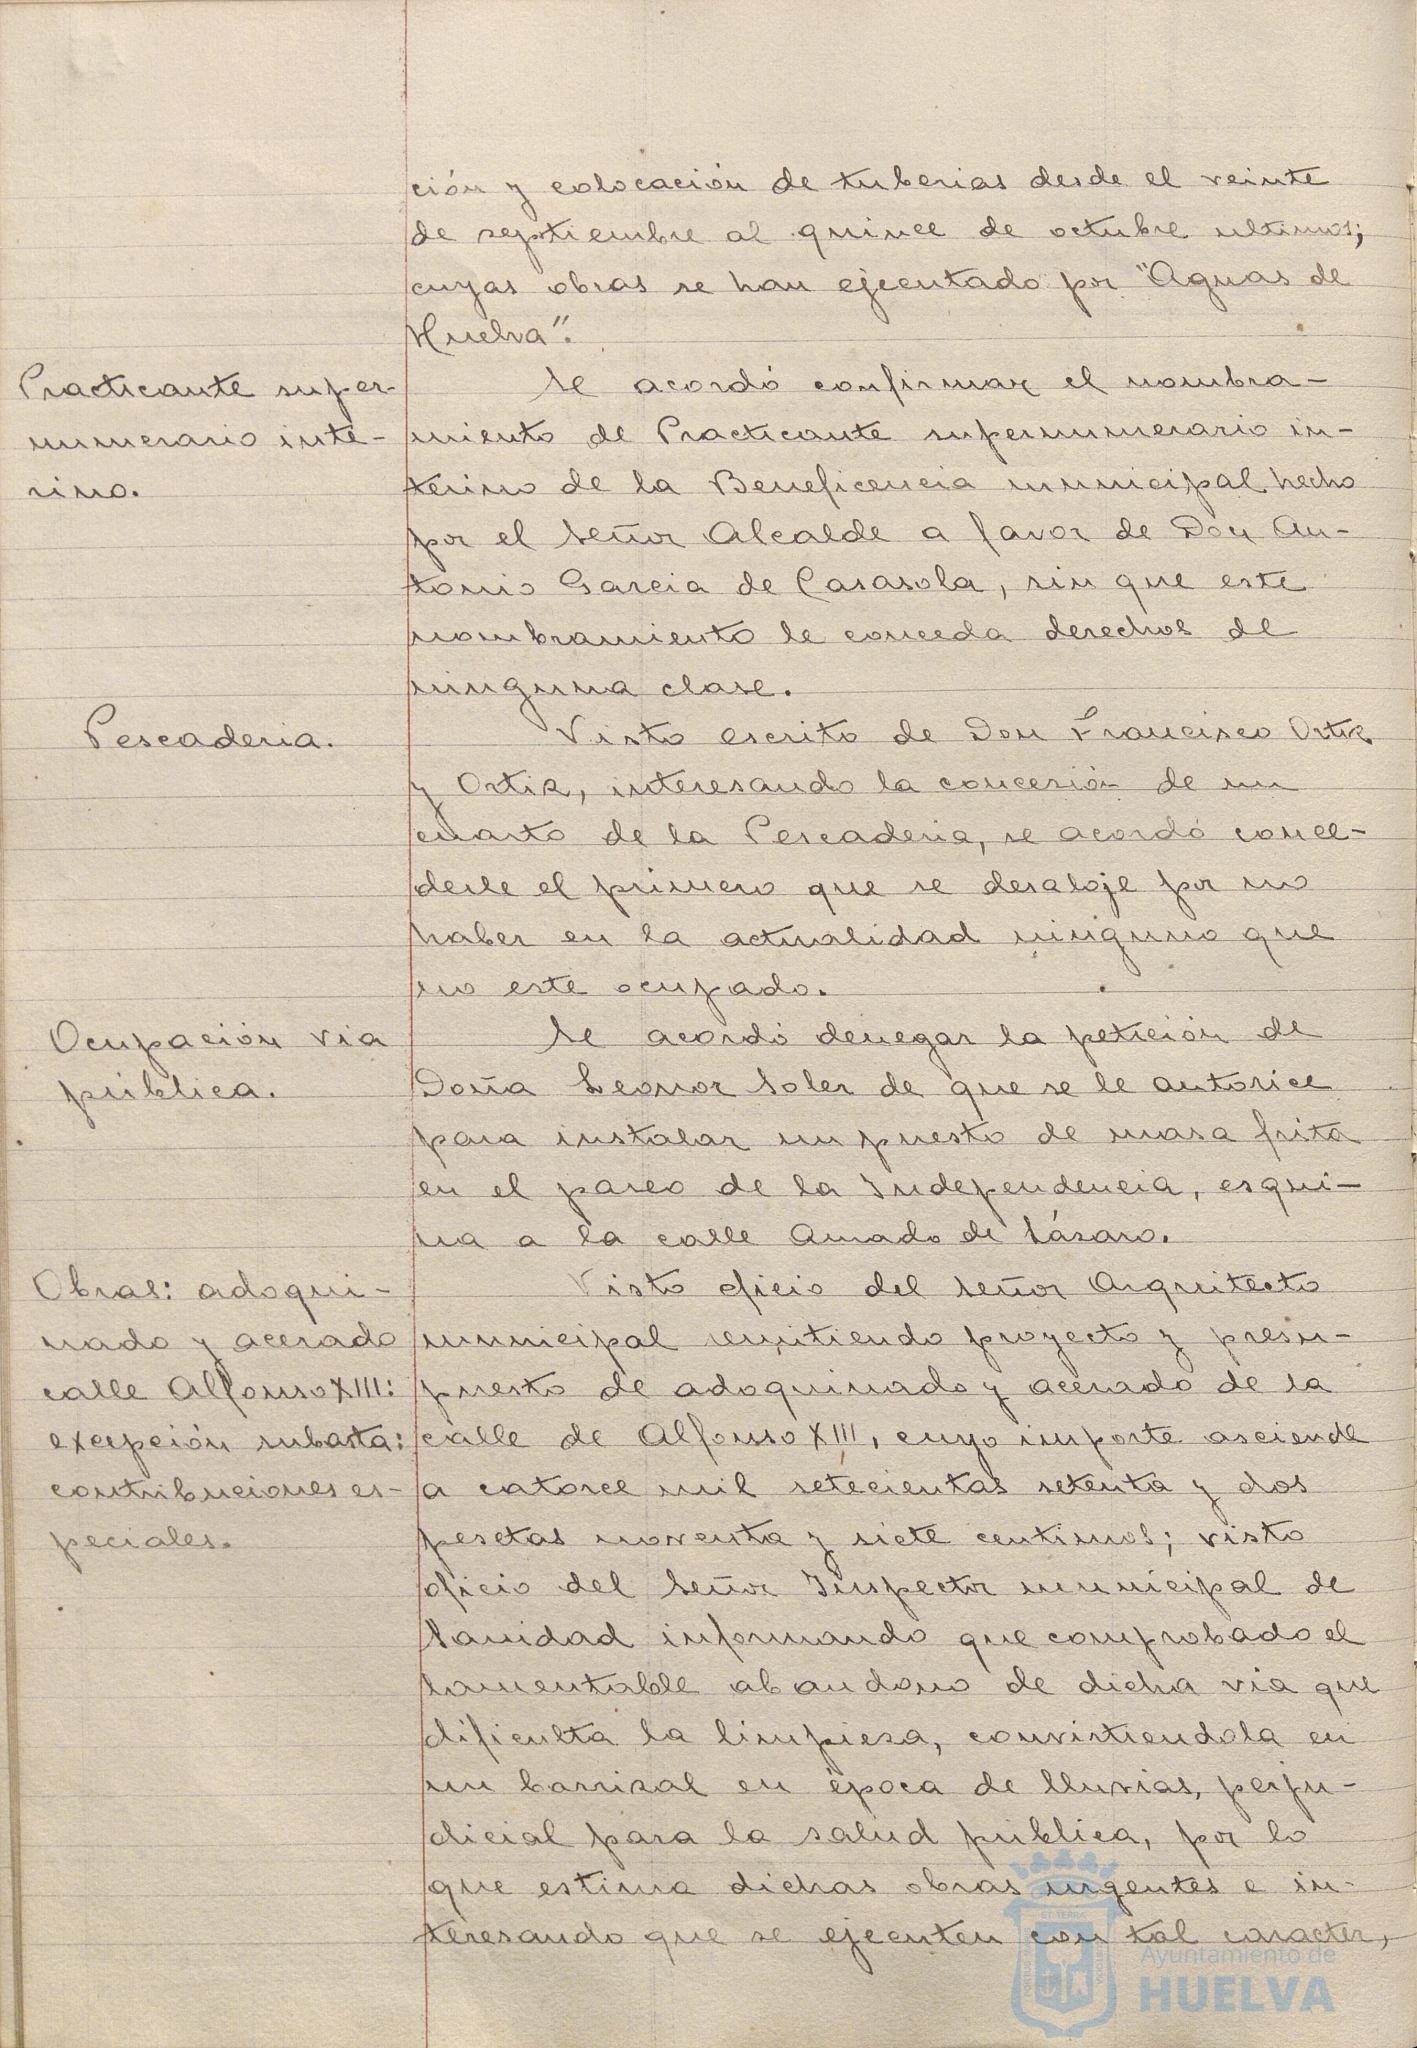 ción y colocación de tuberias desde el veinte
de septiembre al quince de octubre ultimos;
cuyas obras se han ejecutado por "Aguas de
Huelva".
Practicante super-
numerario inte-
rino.
Se acordó confirmar el nombra-
miento de Practicante supernumerario in-
terino de la Beneficencia municipal hecho
por el Señor Alcalde a favor de Don An-
tonio Garcia de Casasola, sin que este
nombramiento le conceda derechos de
ninguna clase.
Pescaderia.
Visto escrito de Don Francisco Ortiz
y Ortiz, interesando la concesión de un
cuarto de la Pescaderia, se acordó conce-
derle el primero que se desaloje por no
haber en la actualidad ninguno que
no este ocupado.
Ocupación via
pública.
Se acordó denegar la petición de
Doña Leonor Soler de que se le autorice
para instalar un puesto de masa frita
en el paseo de la Independencia, esqui-
na a la calle Amado de Lázaro.
Obras: adoqui-
nado y acerado
calle Alfonso XIII:
excepción subasta:
contribuciones es-
peciales.
Visto oficio del Señor Arquitecto
municipal remitiendo proyecto y presu-
puesto de adoquinado y acerado de la
calle de Alfonso XIII, cuyo importe asciende
a catorce mil setecientas setenta y dos
pesetas noventa y siete centimos; visto
oficio del Señor Inspector municipal de
Sanidad informando que comprobado el
lamentable abandono de dicha via que
dificulta la limpieza, convirtiendola en
un barrizal en época de lluvias, perju-
dicial para la salud pública, por lo
que estima dichas obras urgentes e in-
teresando que se ejecuten con tal caracter,
Ayuntamiento de
HUELVA